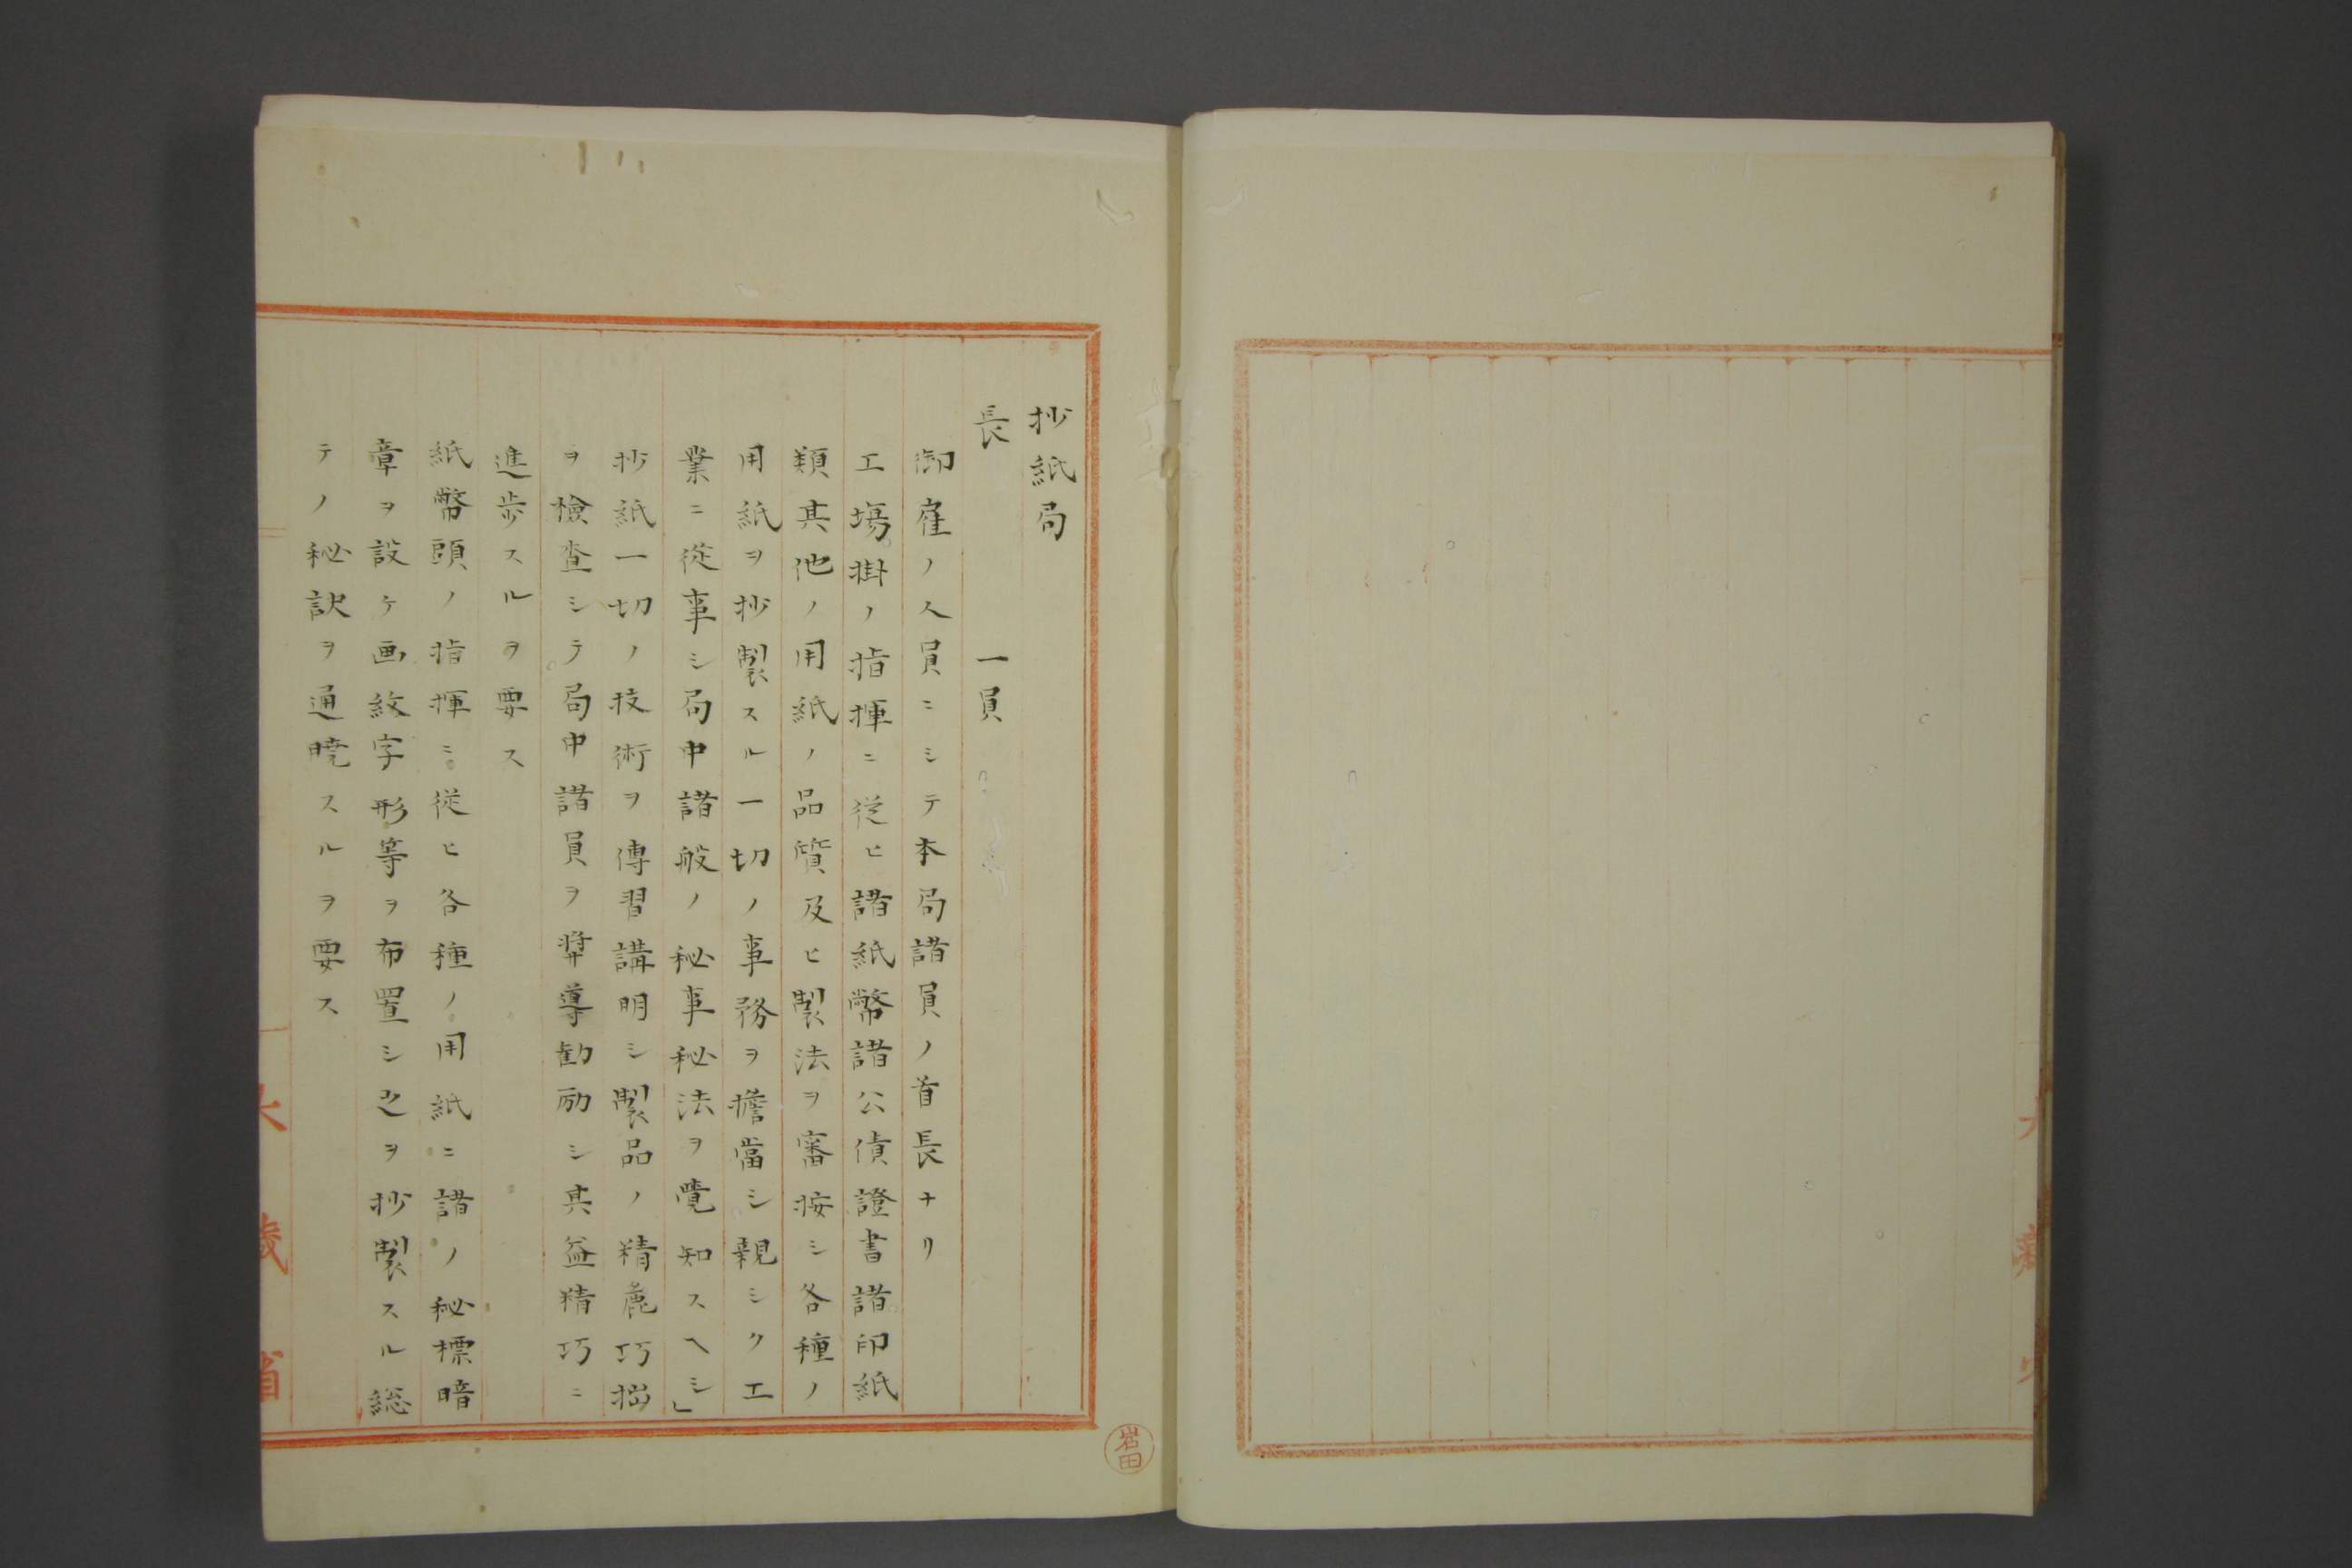 抄紙局
長　　一員
御雇ノ人員ニシテ本局諸員ノ首長ナリ
工塲掛ノ指揮ニ従ヒ諸紙幣諸公債證書諸印紙
類其他ノ用紙ノ品質及ヒ製法ヲ審按シ各種ノ
用紙ヲ抄製スル一切ノ事務ヲ擔當シ親シク工
業ニ従事シ局中諸般ノ秘事秘法ヲ覺知スヘシ」
抄紙一切ノ技術ヲ傳習講明シ製品ノ精麁巧拙
ヲ檢査シテ局中諸員ヲ奨導勧励シ其益精巧ニ
進歩スルヲ要ス
紙幣頭ノ指揮ニ従ヒ各種ノ用紙ニ諸ノ秘標暗
章ヲ設ケ画紋字形等ヲ布置シ之ヲ抄製スル総
テノ秘訣ヲ通曉スルヲ要ス
大蔵省
岩田